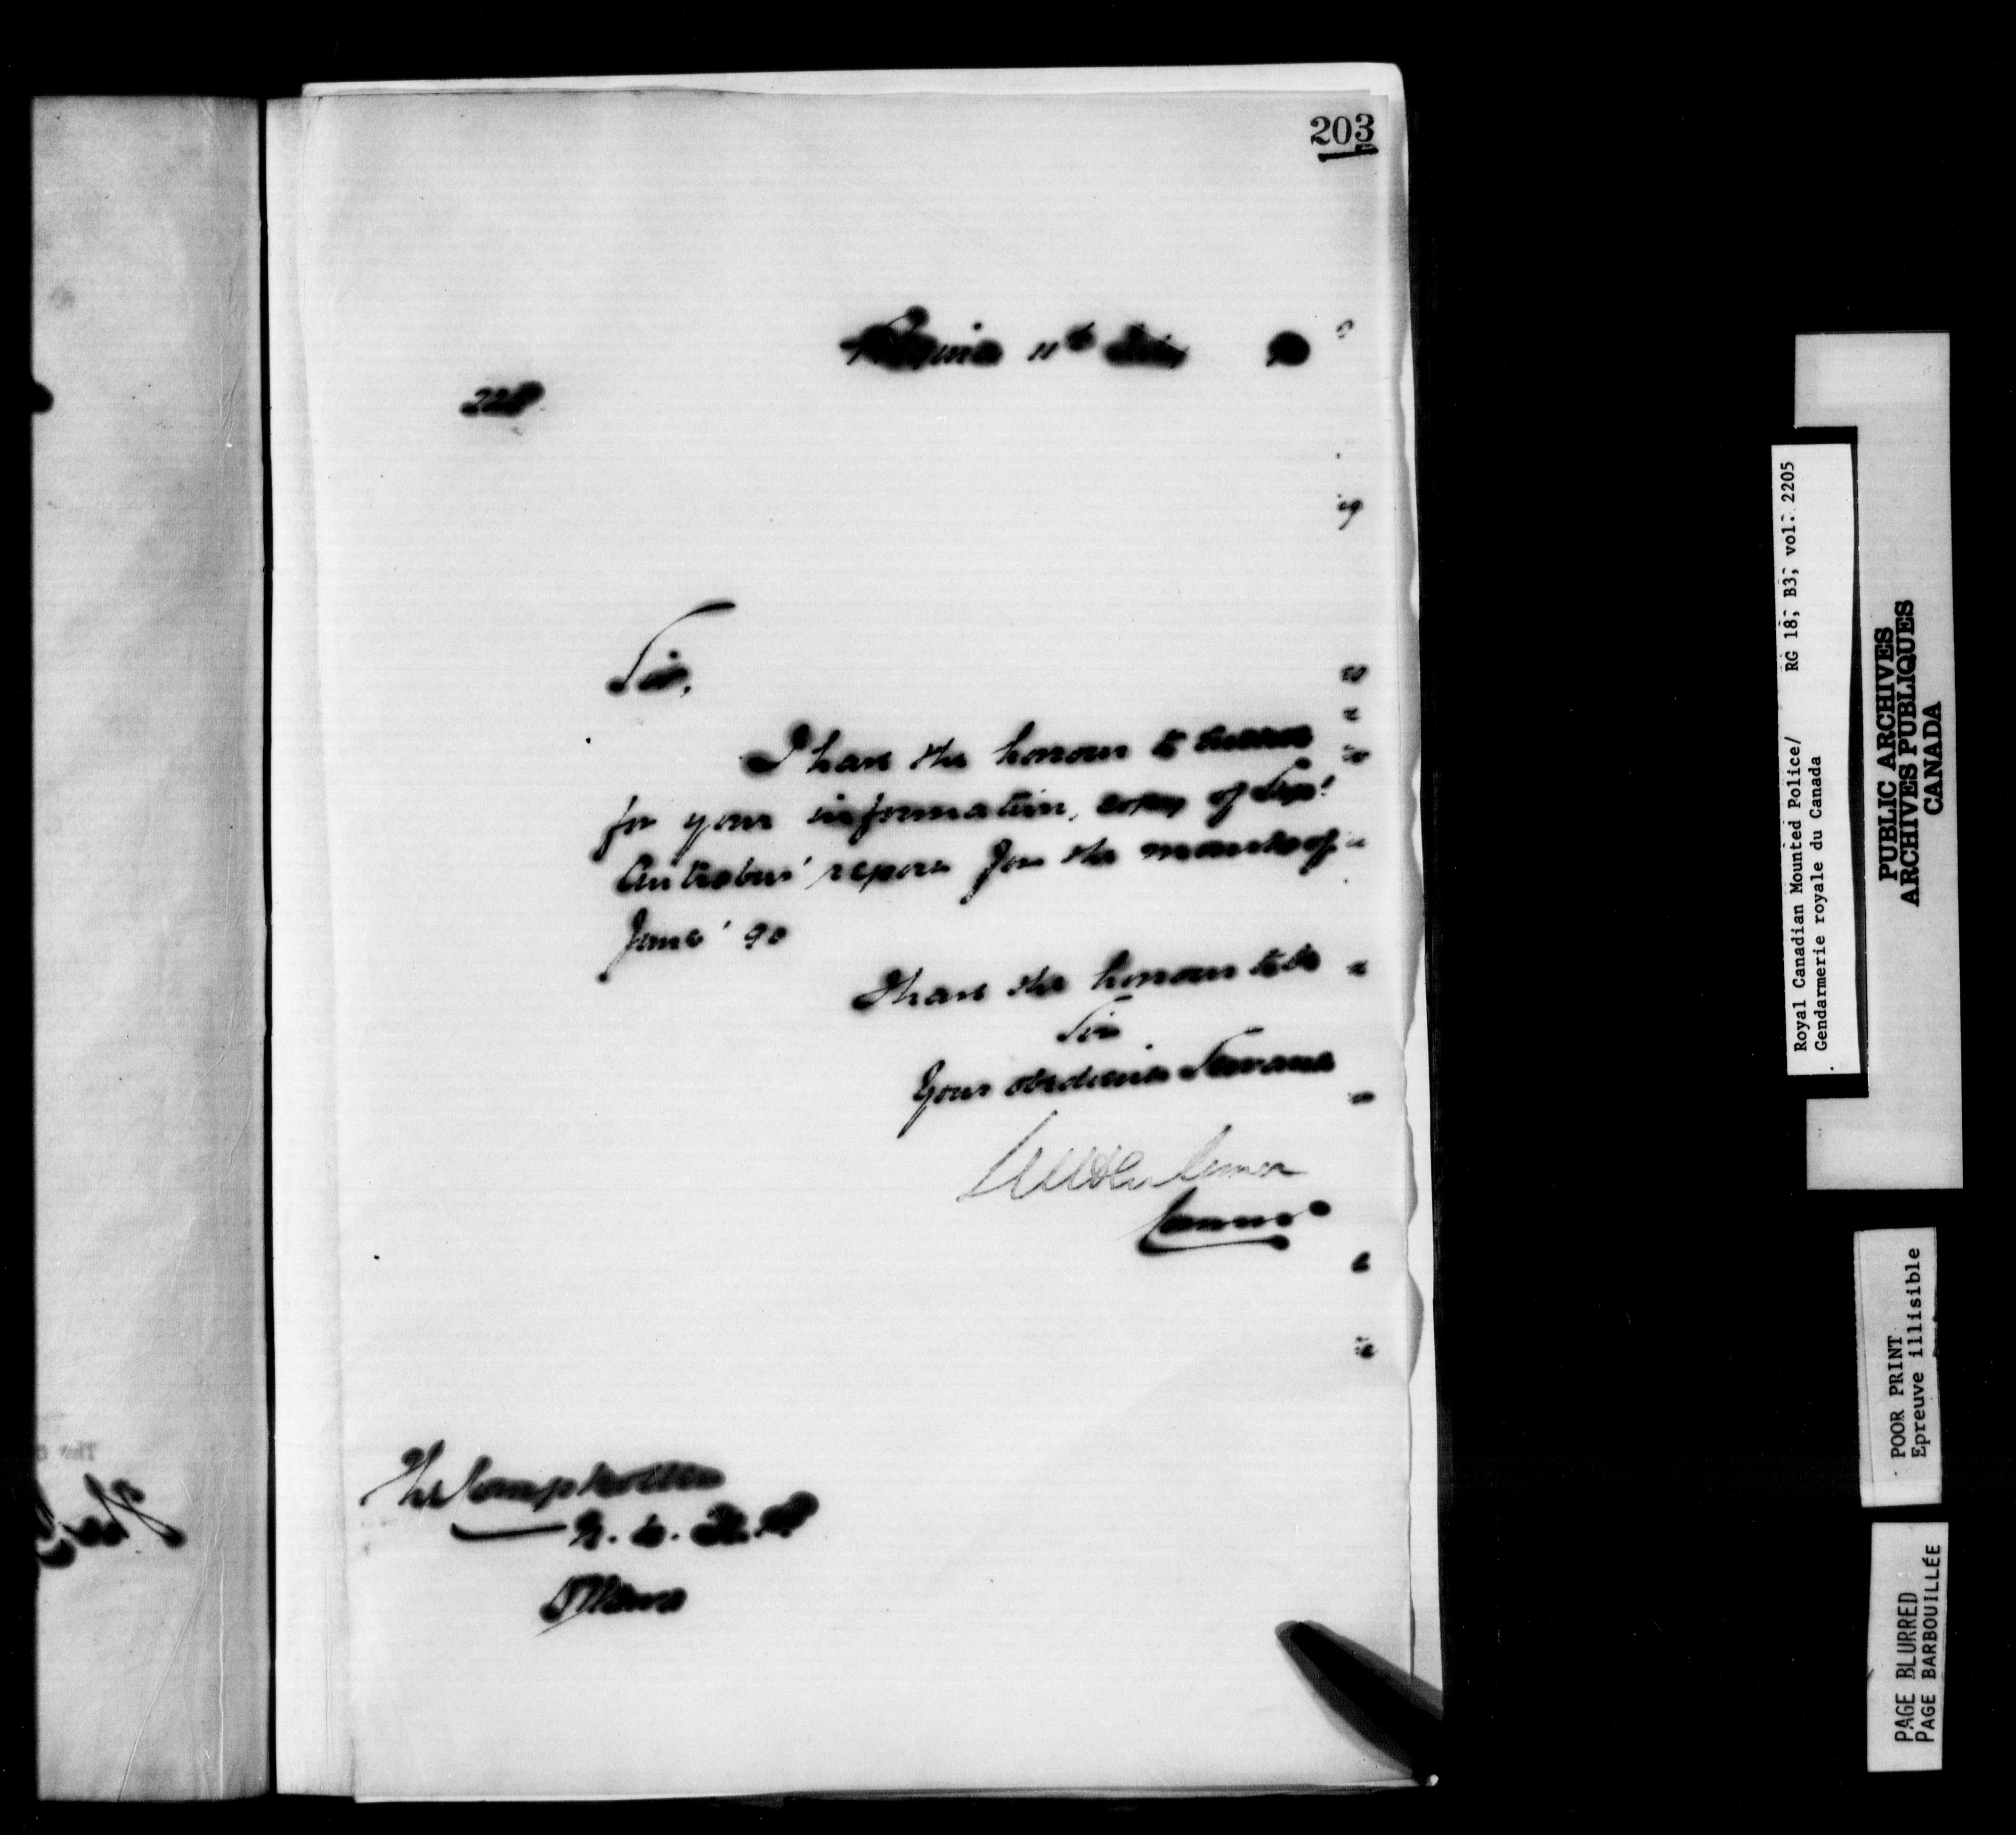 203
Regina 11th July 90
228
Sir,
I have the honour to
for your information, copy of Supt
Antrobus' report for the month of
June '90
I have the honour to be
Sir
Your obedient Servant
Commr
The Comptroller
N. W. M. P.
Ottawa
Royal Canadian Mounted Police/ RG 18, B3, vol. 2205
Gendarmerie royale du Canada
PUBLIC ARCHIVES
ARCHIVES PUBLIQUES
CANADA
POOR PRINT
Epreuve illisible
PAGE BLURRED
PAGE BARBOUILLÉE